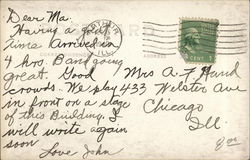 Dear Ma.
Having a good
time Arrived in
4 hrs. Band going
great. Good
crowds. We play
in front on a stage
of this Building. I
will write again
soon
Love John
Mrs A. F. Hund
433 Webster Ave
Chicago
Ill.